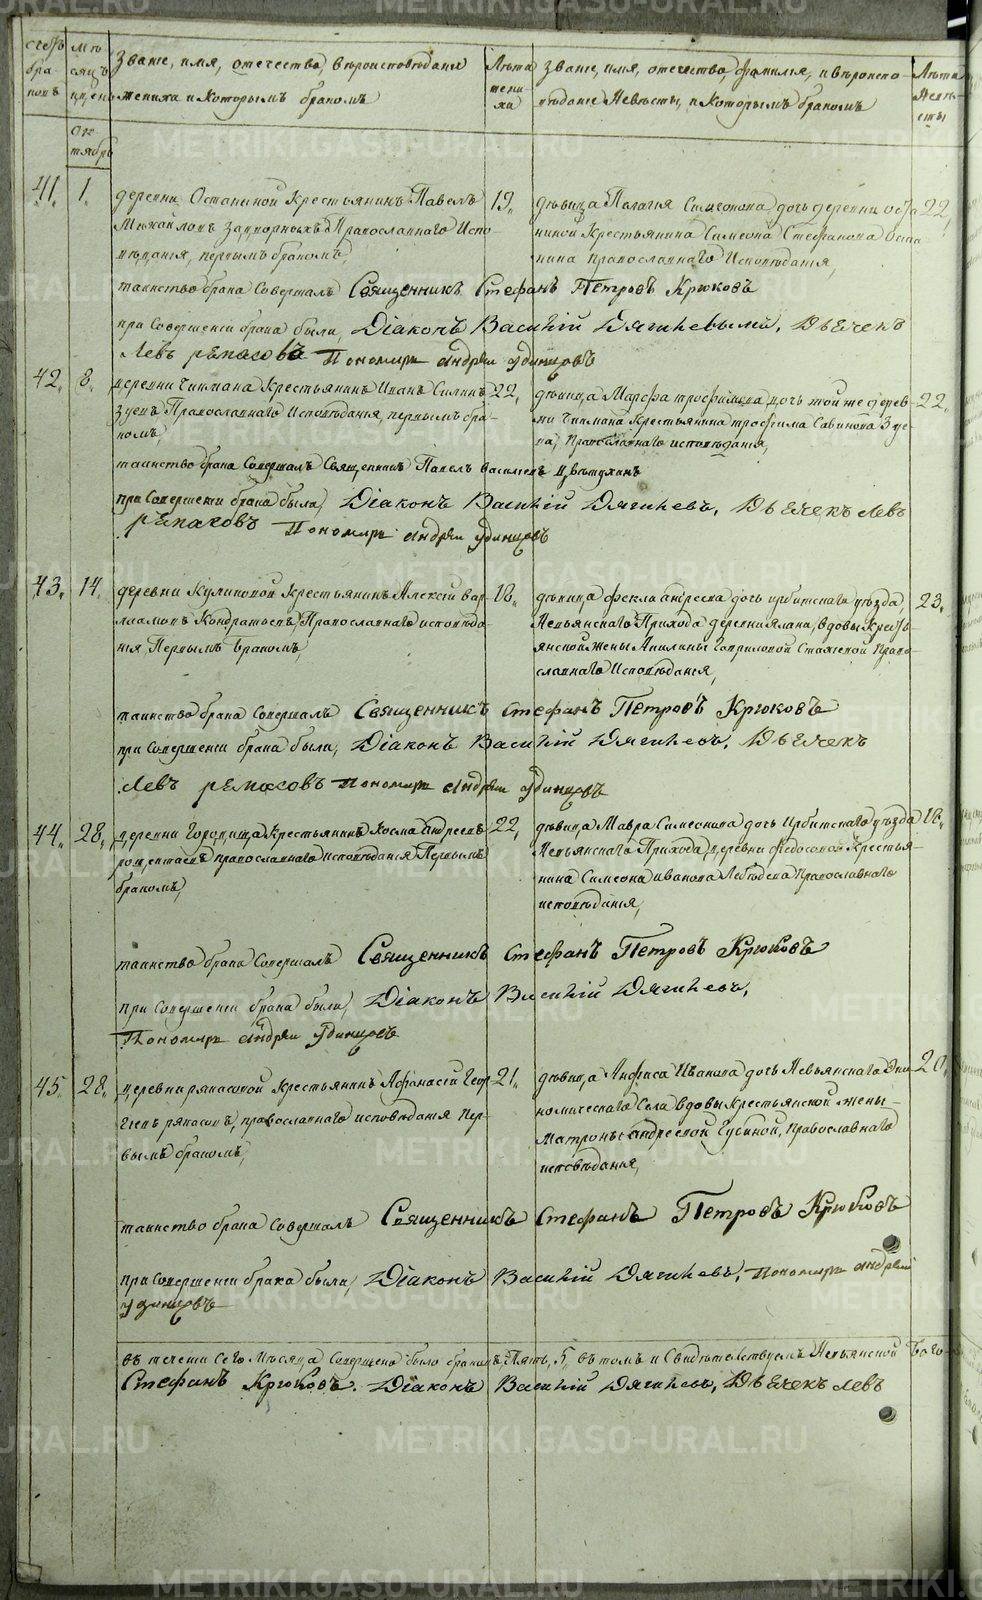 METRIKI.GASO-URAL.RU
счетъ браковъ
Мѣсяцъ и день
Званіе, имя, отечество, вѣроисповѣданіе
жениха и которымъ бракомъ
Лѣта жениха
Званіе, имя, отечество, фамилія, и вѣроиспо-
вѣданіе Невѣсты, и которымъ бракомъ
Лѣта Невѣсты
Октябрь
41. 1.
деревни Останиной Крестьянинъ Павелъ
Михайловъ Православнаго Испо
вѣданія, первымъ бракомъ,
19.
дѣвица Палагія Симеонова дочь деревни Оста
ниной Крестьянина Симеона Стефанова Оста-
нина православнаго Исповѣданія,
22,
таинство брака Совершалъ Священникъ Стефанъ Петровъ Крюковъ
при Совершеніи брака были, Діаконъ Василій Дягилевымъ, Дьячекъ
Левъ Репасовъ Пономарь Андрей Удинцовъ
42. 8.
деревни Чипмана Крестьянинъ Иванъ Силинъ
Зуевъ Православнаго Исповѣданія, первымъ бра-
комъ,
22,
дѣвица Марфа трофимова дочь той же дерев-
ни Чипмана Крестьянина трофима Савинова Зуе
ва, Православнаго исповѣданія,
22.
таинство брака Совершалъ Священникъ Павелъ Васильевъ Цвѣтухинъ
при Совершеніи брака были, Діаконъ Василій Дягилевъ, Дьячекъ Левъ
Репасовъ Пономарь Андрей Удинцовъ
43. 14.
деревни Куликовой Крестьянинъ Алексій Вар-
лаамовъ Кондратьевъ, Православнаго исповѣда-
нія, Первымъ бракомъ,
18.
дѣвица фекла андреева дочь ирбитскаго уѣзда,
Невьянскаго Прихода деревни Ялана, вдовы Кресть
янской жены Акилины Гавриловой Право-
славнаго Исповѣданія,
23.
таинство брака Совершалъ Священникъ Стефанъ Петровъ Крюковъ
при Совершеніи брака были, Діаконъ Василій Дягилевъ, Дьячекъ
Левъ Репасовъ Пономарь Андрей Удинцовъ
44. 28.
деревни Городища Крестьянинъ Косма Андреевъ
православнаго исповѣданія Первымъ
бракомъ,
22,
дѣвица Мавра Симеонова дочь Ирбитскаго уѣзда
Невьянскаго Прихода, деревни Федосовой Крестья-
нина Симеона иванова Лебедева Православнаго
исповѣданія,
18.
таинство брака Совершалъ Священникъ Стефанъ Петровъ Крюковъ
при Совершеніи брака были, Діаконъ Василій Дягилевъ,
Пономарь Андрей Удинцовъ
45. 28.
деревни ряпасовой Крестьянинъ Афанасій Геор-
гіевъ ряпасовъ, православнаго исповѣданія Пер-
вымъ бракомъ,
21.
дѣвица Анфиса Иванова дочь Невьянскаго Эко
номическаго Села вдовы Крестьянской жены
Матроны андреевой Губиной, православнаго
исповѣданія,
20.
таинство брака Совершалъ Священникъ Стефанъ Петровъ Крюковъ
при Совершеніи брака были, Діаконъ Василій Дягилевъ, Пономарь Андрей
Удинцовъ
въ теченіи Сего Мѣсяца Совершено было браковъ, Пять, 5, въ томъ и Свидѣтельствуемъ Невьянской Бого-
Стефанъ Крюковъ. Діаконъ Василій Дягилевъ, Дьячекъ Левъ